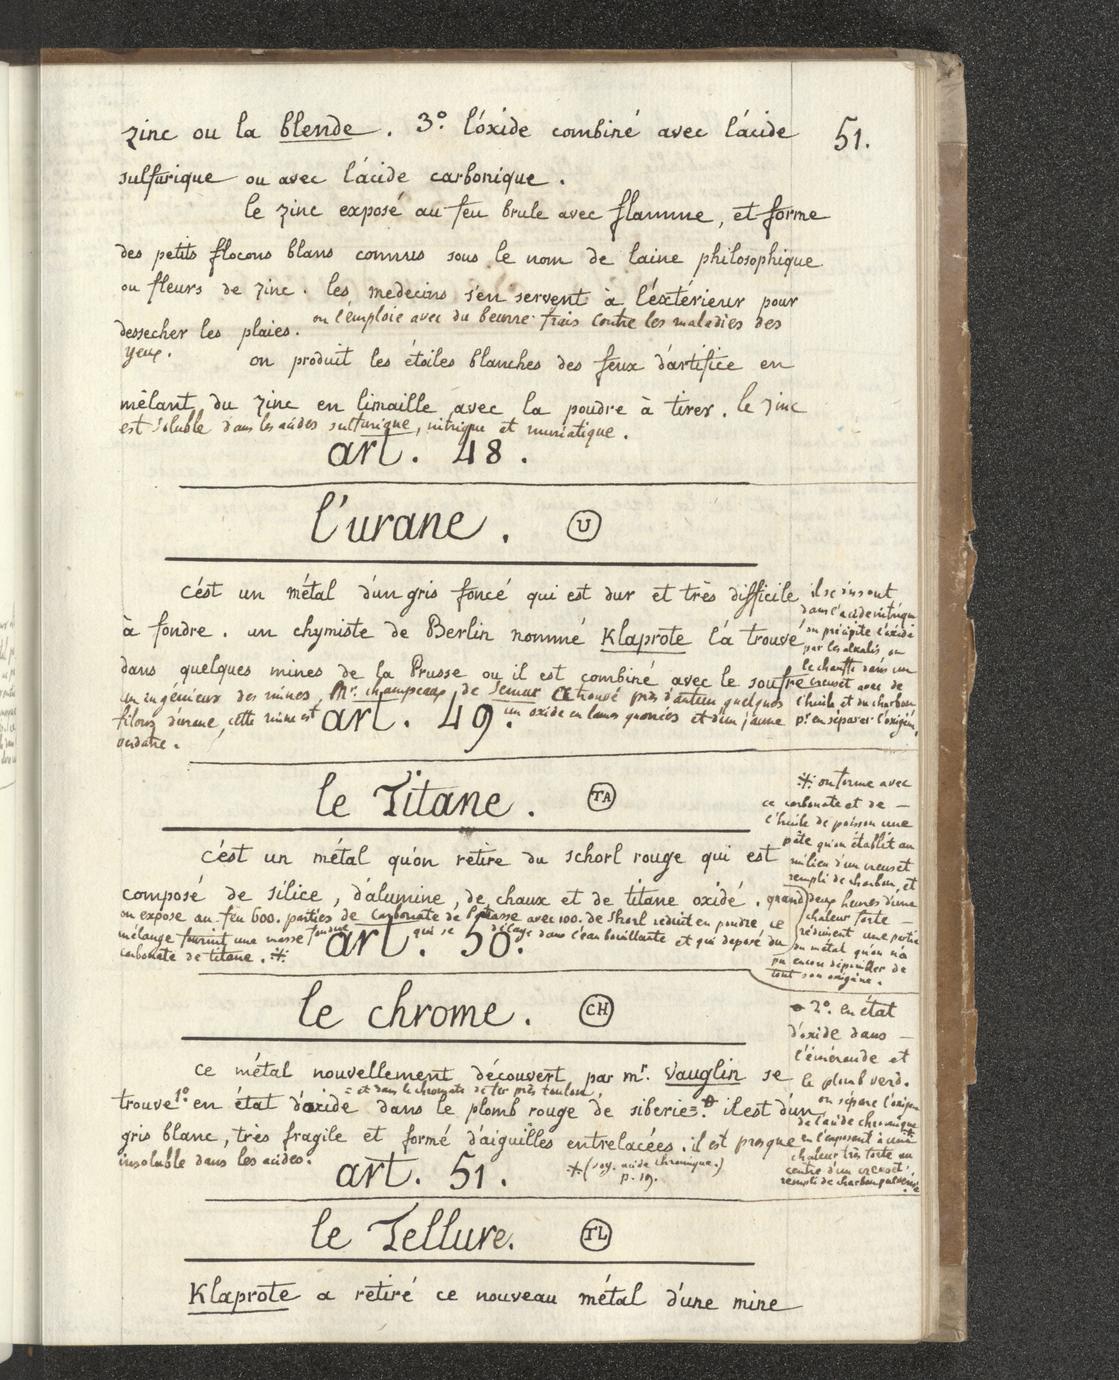 51.
zinc ou la blende . 3º. l'óxide combiné avec l'ácide
sulfurique ou avec l'ácide carbonique .
le zinc exposé au feu brule avec flamme, et forme
des petits flocons blans connus sous le nom de laine philosophique
ou fleurs de zinc . les medecins s'en servent à l'éxtérieur pour
dessecher les plaies. on l'emploie avec du beurre frais contre les maladies des
yeux. on produit les étoiles blanches des feux d'artifice en
mêlant du zinc en limaille avec la poudre à tirer. le zinc
est soluble dans les acides sulfurique, nitrique et muriatique .
art. 48 .
l'urane . U
c'ést un métal d'un gris foncé qui est dur et très difficile
à fondre . un chymiste de Berlin nommé Klaprote l'á trouvé
dans quelques mines de la Prusse ou il est combiné avec le soufre
un ingénieur des mines, Mr. champeaux, de Semur a trouvé près d'autun quelques
filons d'urane, cette mine est un oxide en lames quarrées et d'un jaune
verdatre .
il se dissout
dans l'acide nitrique
on précipite l'oxide
par les alkalis on
le chauffe dans un
creuset avec de
l'huile et du charbon
pr. en séparer l'oxigène,
art. 49.
le Titane . TA
c'ést un métal qu'on rétire du schorl rouge qui est
composé de silice, d'alumine, de chaux et de titane oxidé .
on expose au feu 600. parties de Carbonate de Potasse avec 100. de Shorl réduit en poudre ce
mélange fournit une masse fondue qui se délaye dans l'eau bouillante et qui depose du
carbonate de titane . ⁜
⁜ on forme avec
ce carbonate et de —
l'huile de poisson une
pâte qu'on établit au
milieu d'un creuset
rempli de charbon, et
quand deux heures d'une
chaleur forte —
réduisent une partie
du métal qu'on n'a
pu encore dépouiller de
tout son oxigène .
art. 50.
le chrome . CH
ce métal nouvellement découvert par mr. Vauglin se
= et dans le chromate de fer près toulon
trouve 1º. en état d'oxide dans le plomb rouge de siberie = il est d'un
gris blanc, très fragile et formé d'aiguilles entrelacées . il est presque
insoluble dans les acides.
2º. en état
d'oxide dans —
l'émeraude et
le plomb verd.
on sépare l'oxigène
de l'acide chromique
en l'exposant à une
chaleur très forte au
centre d'un creuset
rempli de charbon
*(voy. acide chromique.)
p. 19.
art. 51 .
le Tellure. TL
Klaprote a rétiré ce nouveau métal d'une mine